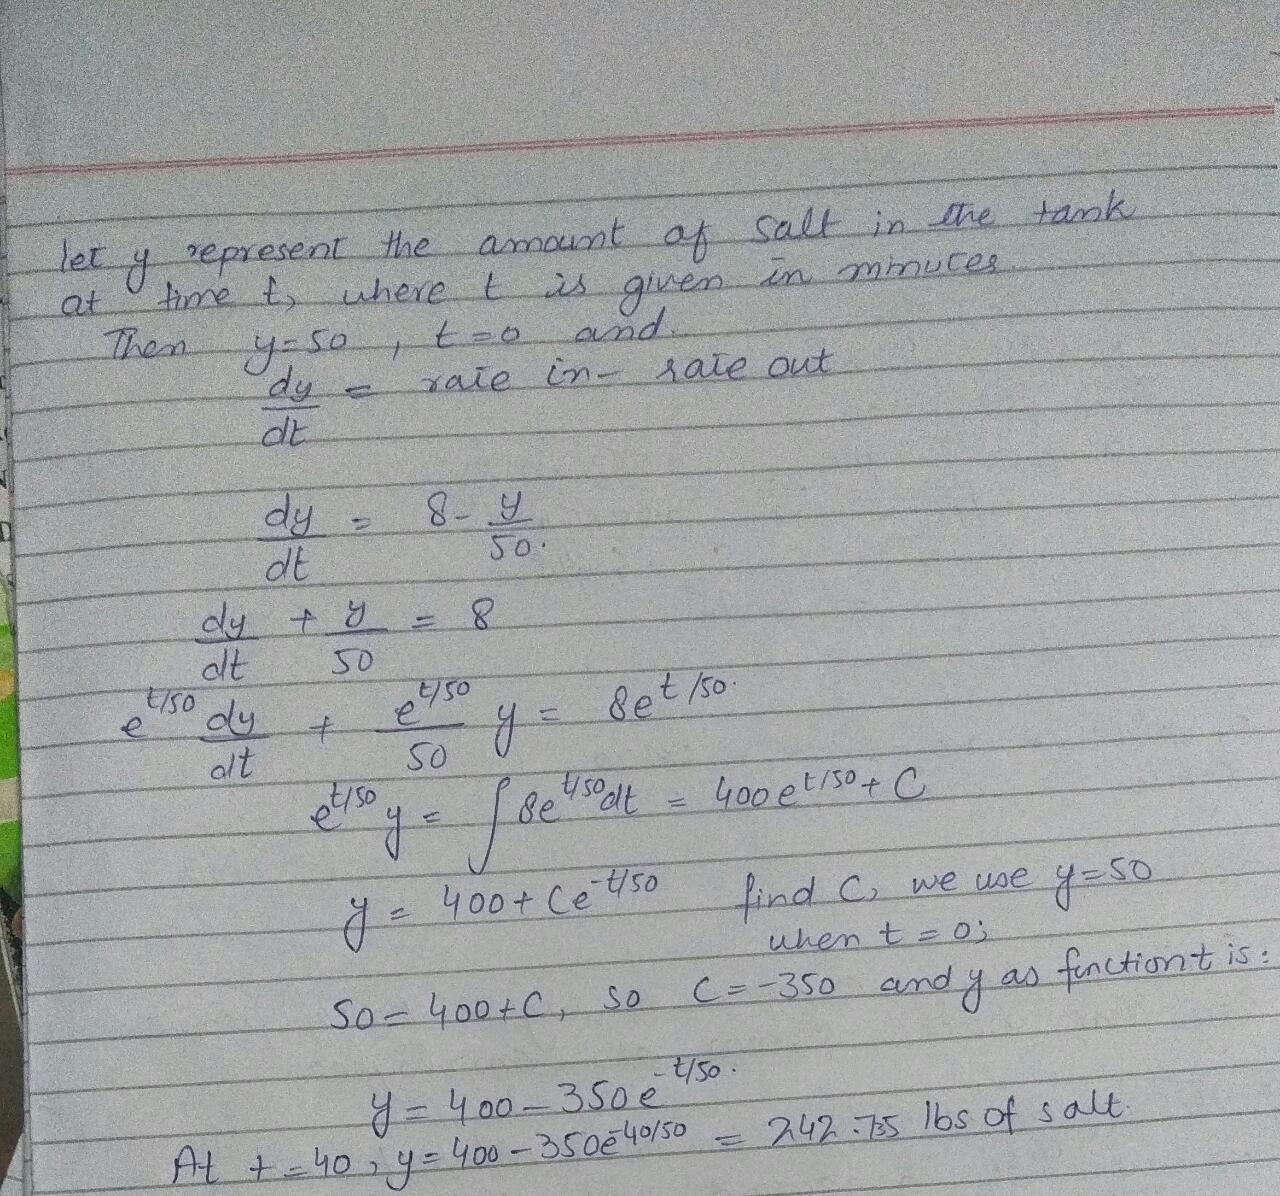 let y represent the amount of salt in the tank
at time t, where t is given in minutes.
Then y=50, t=0 and.
dy/dt = rate in - rate out
dy/dt = 8 - y/50.
dy/dt + y/50 = 8
e^t/50 dy/dt + e^t/50/50 y = 8e^t/50.
e^t/50 y = ∫8e^t/50 dt = 400e^t/50 + C
y = 400 + Ce^-t/50 find C, we use y=50
when t=0;
50 = 400+C, so C=-350 and y as function t is:
y = 400 - 350e^-t/50.
At t=40, y=400-350e^-40/50 = 242.735 lbs of salt.